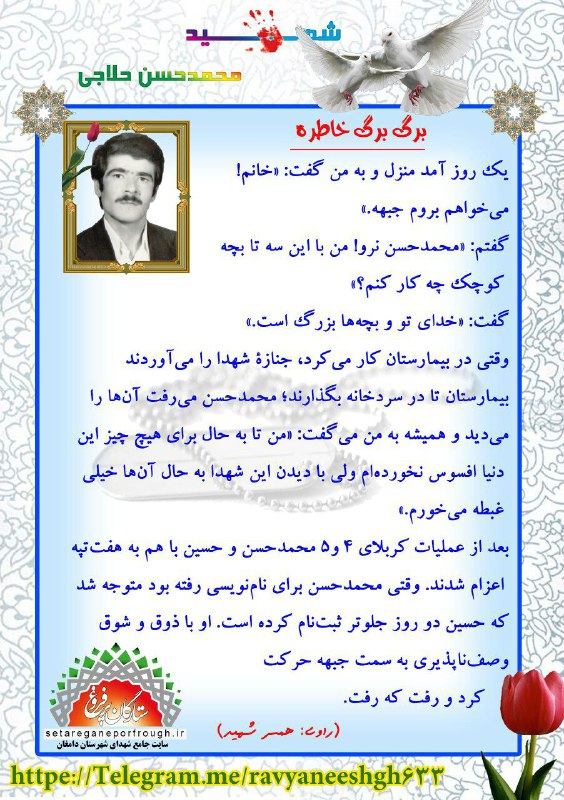 شهید
محمدحسن حلاجی
برگی برگی خاطره
یک روز آمد منزل و به من گفت: «خانم!
می‌خواهم بروم جبهه.»
گفتم: «محمدحسن نرو! من با این سه تا بچه
کوچک چه کار کنم؟»
گفت: «خدای تو و بچه‌ها بزرگ است.»
وقتی در بیمارستان کار می‌کرد، جنازهٔ شهدا را می‌آوردند
بیمارستان تا در سردخانه بگذارند؛ محمدحسن می‌رفت آن‌ها را
می‌دید و همیشه به من می‌گفت: «من تا به حال برای هیچ چیز این
دنیا افسوس نخورده‌ام ولی با دیدن این شهدا به حال آن‌ها خیلی
غبطه می‌خورم.»
بعد از عملیات کربلای ۴ و۵ محمدحسن و حسین با هم به هفت‌تپه
اعزام شدند. وقتی محمدحسن برای نام‌نویسی رفته بود متوجه شد
که حسین دو روز جلوتر ثبت‌نام کرده است. او با ذوق و شوق
وصف‌ناپذیری به سمت جبهه حرکت
کرد و رفت که رفت.
(راوی: همسر شهید)
ستارگان پرفروغ
setareganeporfrough.ir
سایت جامع شهدای شهرستان دامغان
https://Telegram.me/ravyaneeshgh۶۳۳